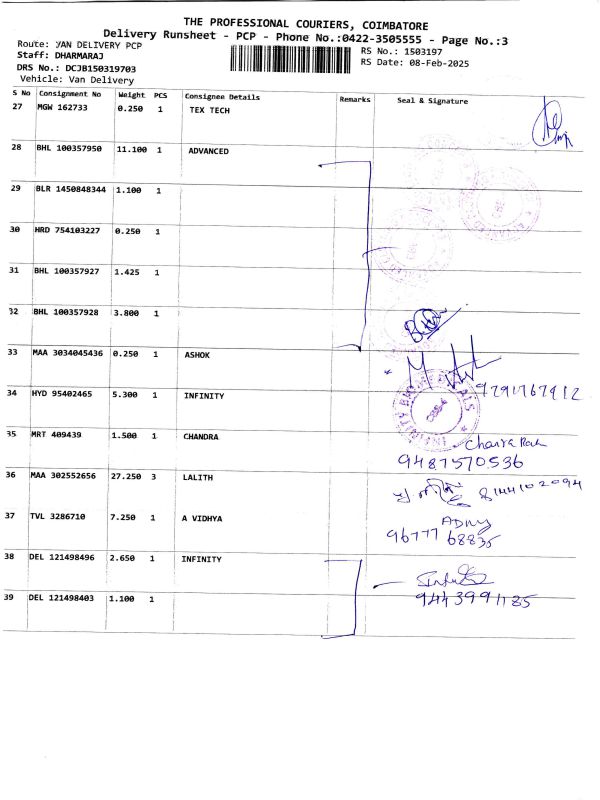 THE PROFESSIONAL COURIERS, COIMBATORE
Delivery Runsheet - PCP - Phone No.:0422-3505555 - Page No.:3
Route: VAN DELIVERY PCP
Staff: DHARMARAJ
RS No.: 1503197
DRS No.: DCJB150319703
RS Date: 08-Feb-2025
Vehicle: Van Delivery
S No Consignment No Weight PCS Consignee Details Remarks Seal & Signature
27 MGW 162733 0.250 1 TEX TECH
28 BHL 100357950 11.100 1 ADVANCED
29 BLR 1450848344 1.100 1
30 HRD 754103227 0.250 1
31 BHL 100357927 1.425 1
32 BHL 100357928 3.800 1
33 MAA 3034045436 0.250 1 ASHOK
9791767912
34 HYD 95402465 5.300 1 INFINITY
35 MRT 409439 1.500 1 CHANDRA
9487570536
36 MAA 302552656 27.250 3 LALITH
8144102094
37 TVL 3286710 7.250 1 A VIDHYA
9677768835
38 DEL 121498496 2.650 1 INFINITY
39 DEL 121498403 1.100 1
9443991185